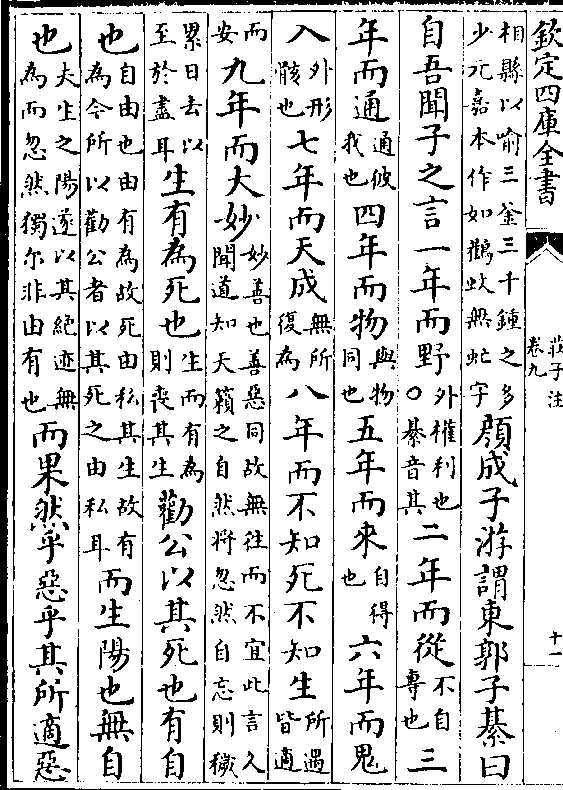 欽定四庫全書
莊子注
卷九
十一
相懸以喻三釜三千鍾之多少元嘉本作如鸛蚊無虻字顔成子游謂東郭子綦曰
自吾聞子之言一年而野外權利也○綦音其二年而從不自專也三
年而通通彼我也四年而物與物同也五年而來自得也六年而鬼
入外形骸也七年而天成無所復為八年而不知死不知生所遇皆適
而安九年而大妙妙善也善惡同故無往而不宜此言久聞道知天籟之自然將忽然自忘則穢
累日去以至於盡耳生有為死也生而有為則喪其生勸公以其死也有自
也自由也由有為故死由私其生故有為今所以勸公者以其死之由私耳而生陽也無自
也夫生之陽遂以其絶迹無為而忽然獨尓非由有也而果然乎惡乎其所適惡